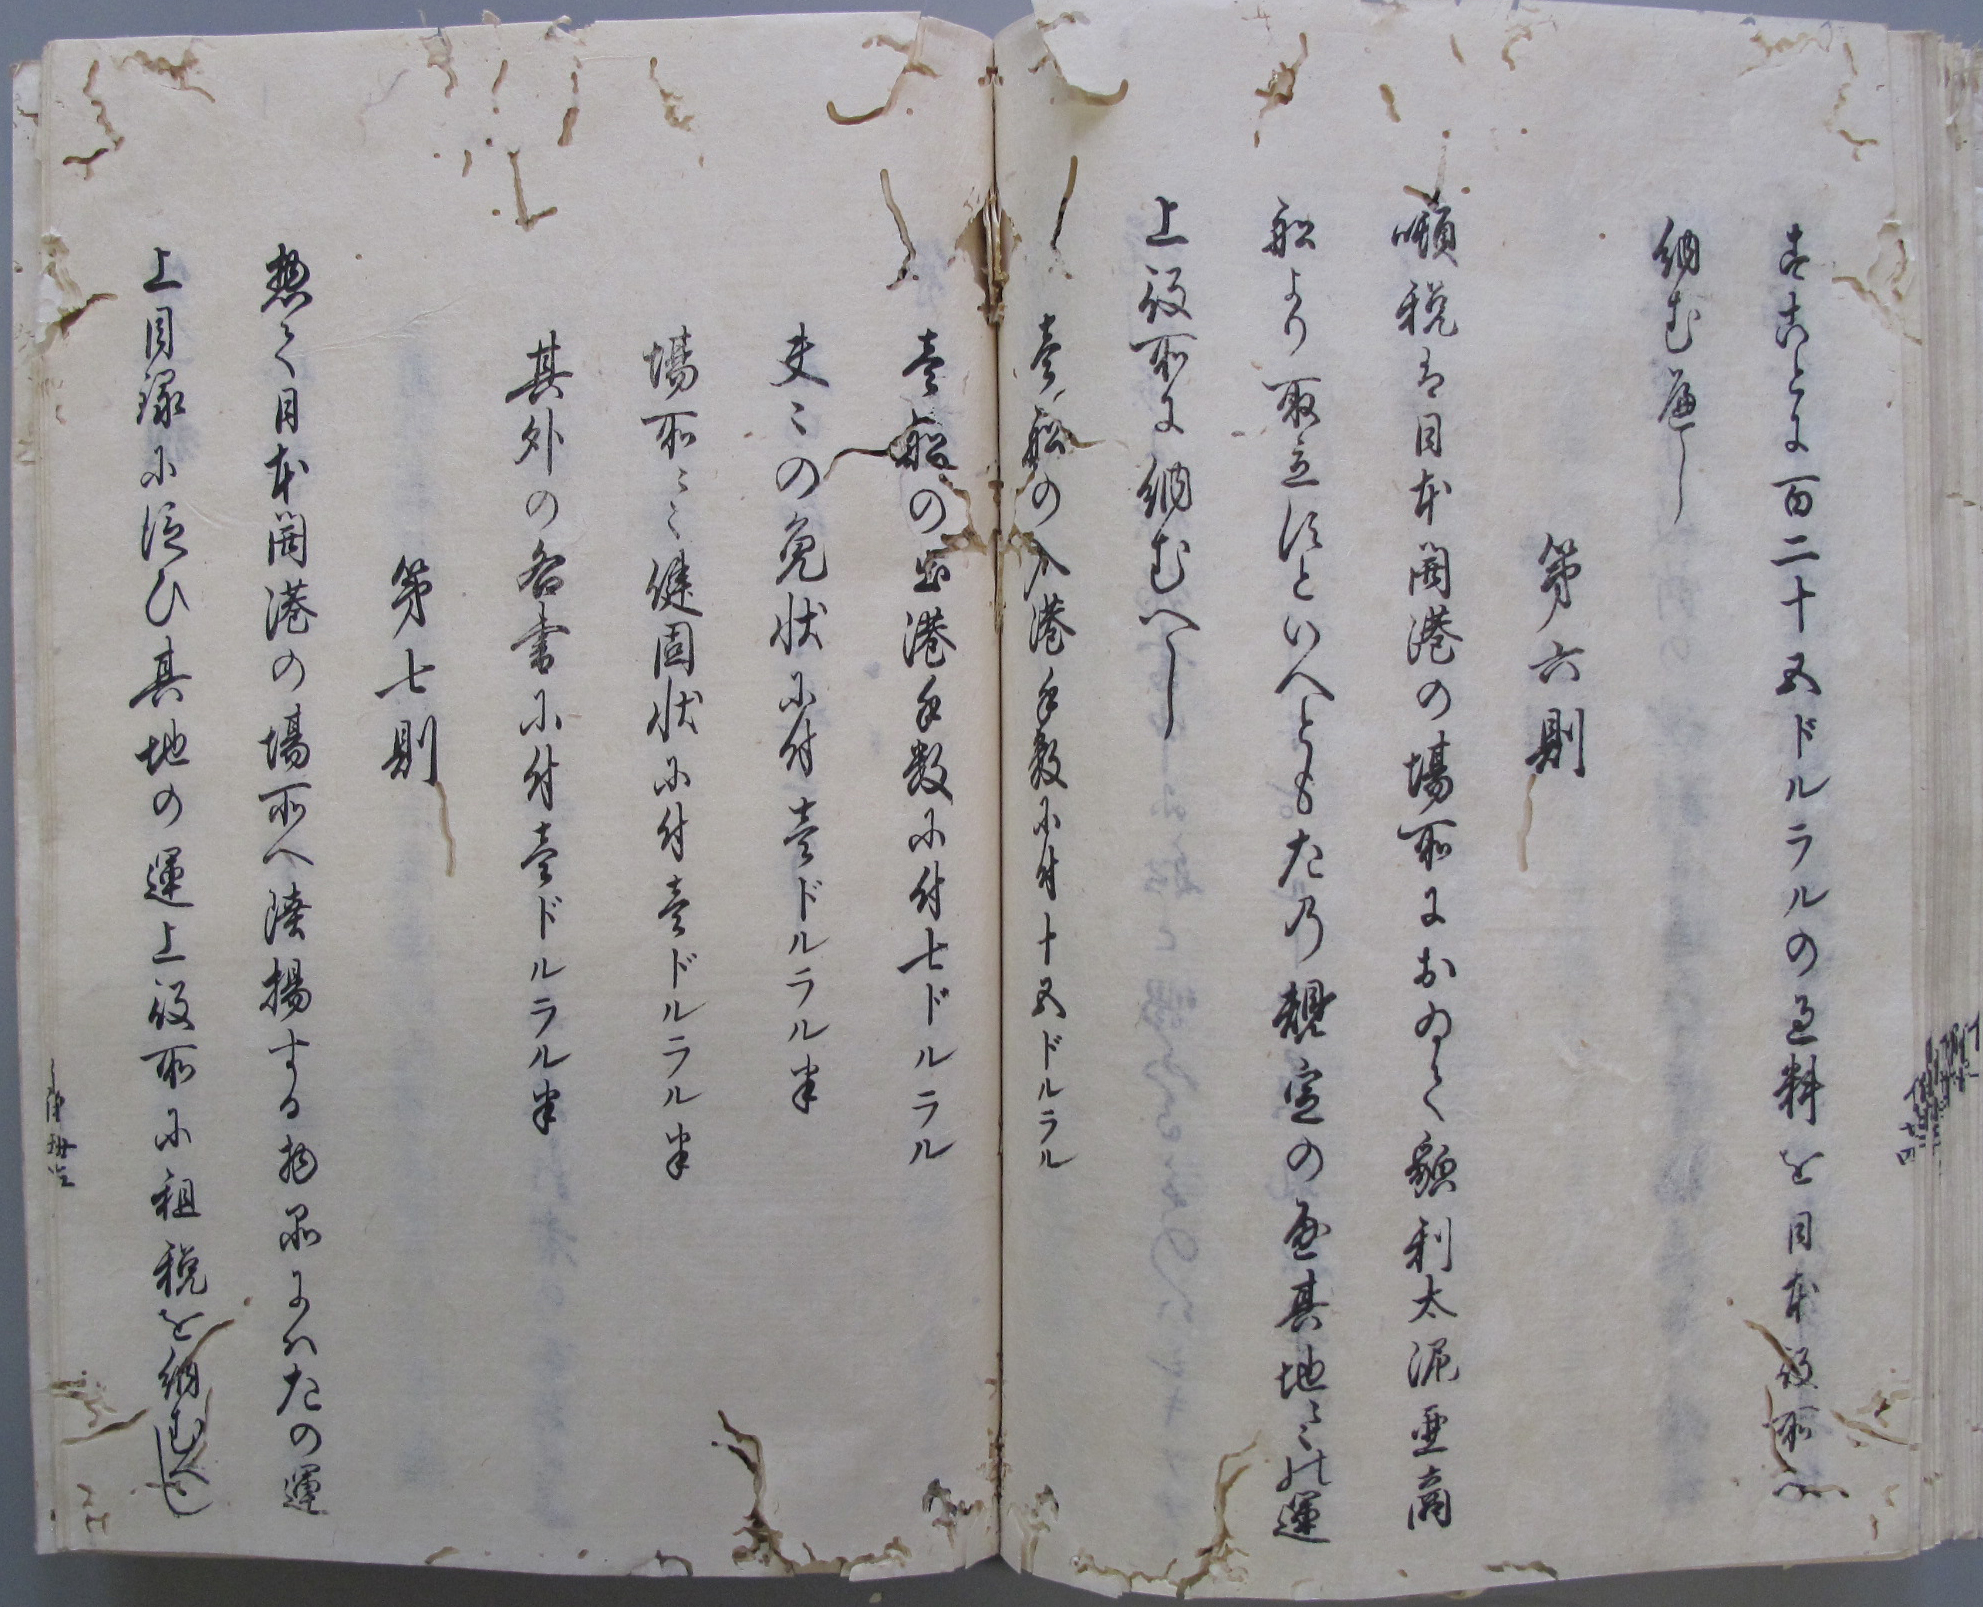 すことに百二十五ドルラルの過料を日本役所へ
納む遍し
第六則
噸税は日本開港の場所におゐて貌利太泥亜商
船より取立すといへとも左乃規定の通其地ミの運
上役所に納むへし
壱船の入港手数に付十五ドルラル
壱船の出港手数に付七ドルラル
夫々の免状に付壱ドルラル半
場所ミミ健固状に付壱ドルラル半
其外の各書に付壱ドルラル半
第七則
惣て日本開港の場所へ陸揚する物品にハ左の運
上目録に従ひ其地の運上役所に租税を納むへし